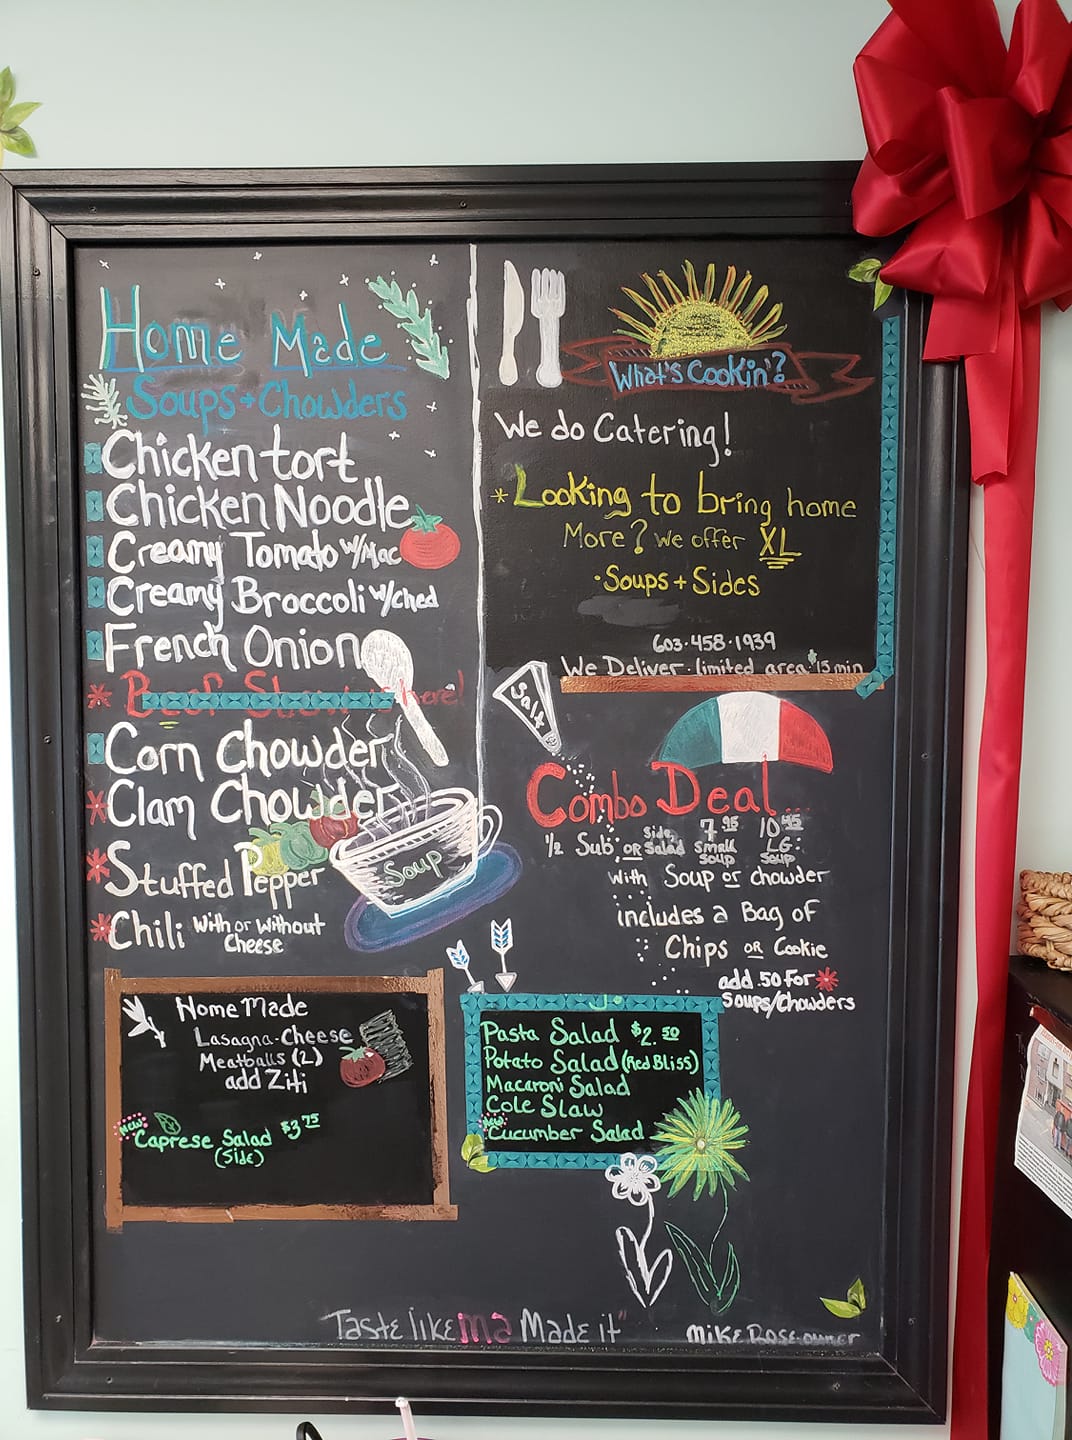 Home Made
Soups + Chowders
Chicken tort
Chicken Noodle
Creamy Tomato w/Mac
Creamy Broccoli w/ched
French Onion
Corn Chowder
Clam Chowder
Stuffed Pepper
Chili With or Without
Cheese
Soup
What's Cookin'?
We do Catering!
*Looking to bring home
More? We offer XL
·Soups + Sides
603·458·1939
We Deliver · limited area · 15 min
Salt
Combo Deal
1/2 Sub OR Side Salad 7.95 Small Soup 10.45 LG. Soup
With Soup or chowder
includes a Bag of
Chips OR Cookie
add .50 For *
Soups/Chowders
Home Made
Lasagna-Cheese
Meatballs (2)
add Ziti
New
Caprese Salad $3.75
(Side)
Pasta Salad $2.50
Potato Salad (Red Bliss)
Macaroni Salad
Cole Slaw
New
Cucumber Salad
Taste like ma Made it"
Mike Rose-owner